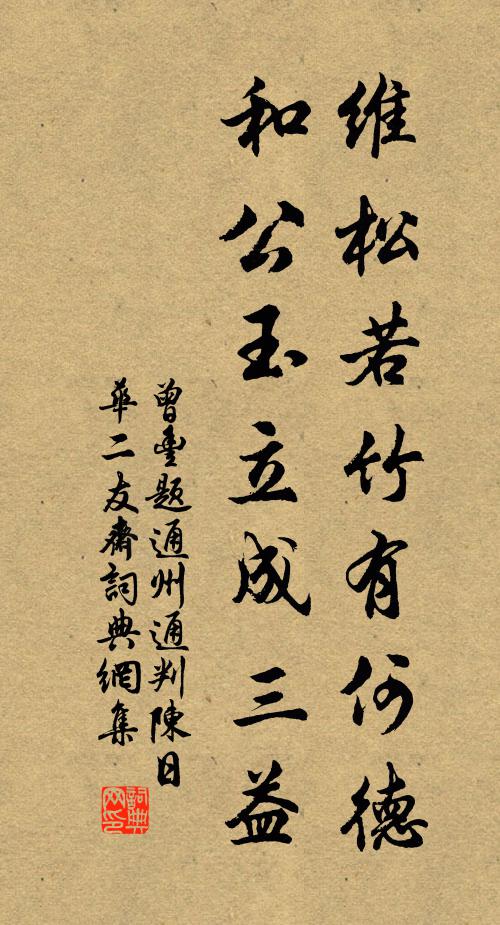 維松若竹有何德
和公玉立成三益
曾豐題通州通判陳日
華二友齋詞典網集
詞典網印